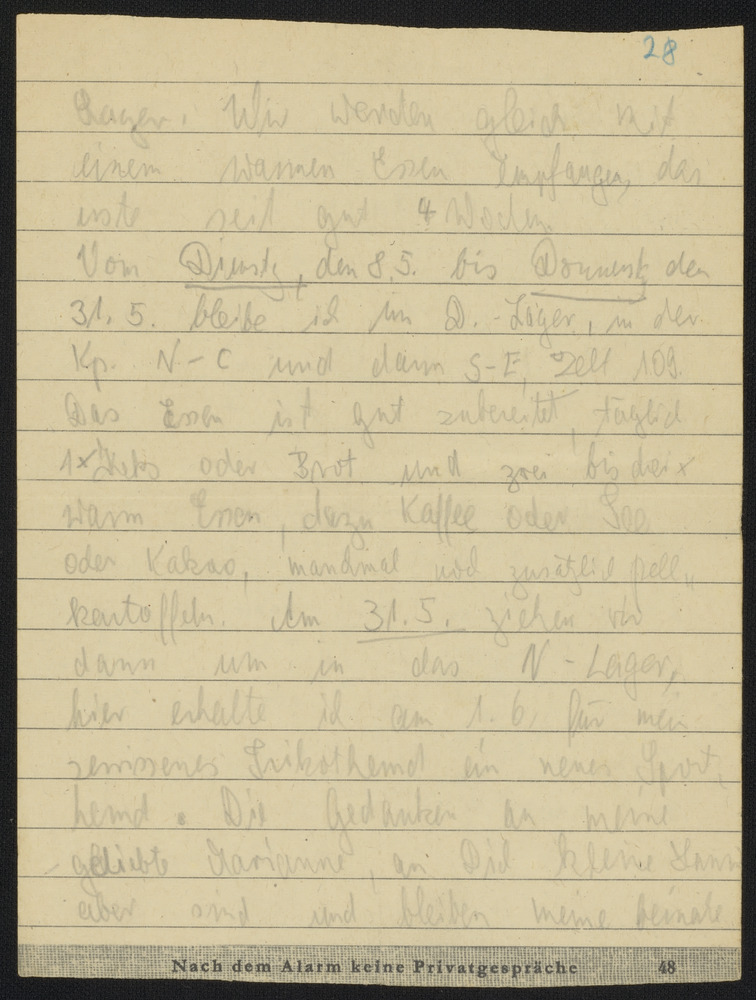 28
Lager. Wir werden gleich mit
einem warmen Essen Empfangen, das
erste seit gut 4 Wochen
Vom Dienstg, den 8.5. bis Donnerst den
31. 5. bleibe ich im D.-Lager, in der
Kp. N-C und dann S-E, Zelt 109.
Das Essen ist gut zubereitet, täglich
1x Keks oder Brot und zwei bis drei x
warm Essen, dazu Kaffee oder Tee
oder Kakao, manchmal noch zusätzlich Pell„
kartoffeln. Am 31.5. ziehen wir
dann um in das N-Lager,
hier erhalte ich am 1. 6. für mein
zerrissenes Trikothemd ein neues Sport„
hemd. Die Gedanken an meine
geliebte Marianne, an Dich kleine
aber sind und bleiben meine beinahe
Nach dem Alarm keine Privatgespräche 48